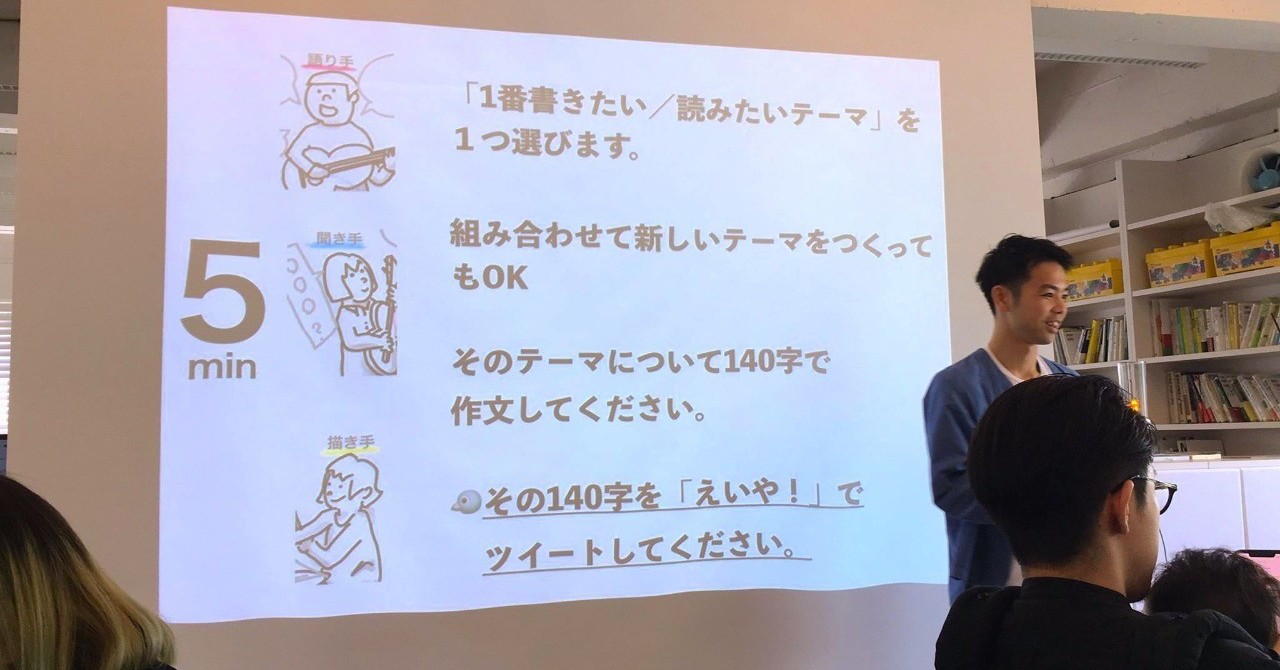 語り手
「1番書きたい／読みたいテーマ」を
１つ選びます。
5
min
聞き手
組み合わせて新しいテーマをつくって
もOK
そのテーマについて140字で
作文してください。
描き手
その140字を「えいや！」で
ツイートしてください。